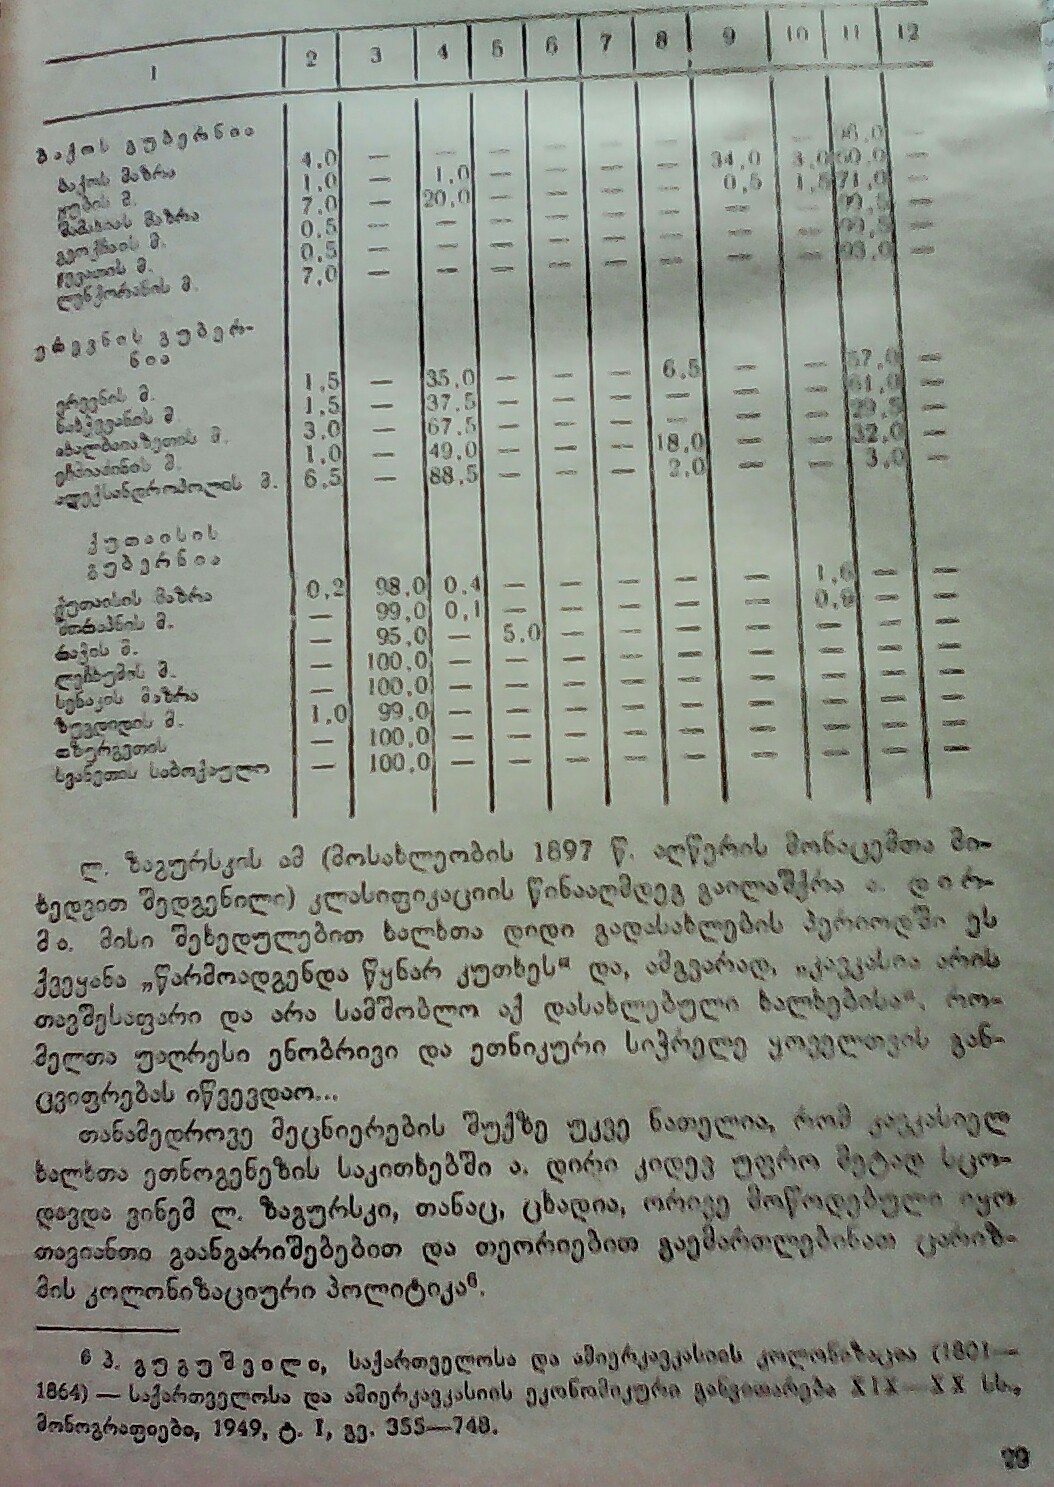 1 2 3 4 5 6 7 8 9 10 11 12
ბაქოს გუბერნია
ბაქოს მაზრა 4,0 — — — — — — 34,0 3,0
ყუბის მ. 1,0 — 1,0 — — — — 0,5 71,0 —
შამახიის მაზრა 7,0 — 20,0 — — — — — — —
გეოკჩაის მ. 0,5 — — — — — — — — —
ჯევათის მ. 0,5 — — — — — — — — —
ლენქორანის მ. 7,0 — — — — — — — — 93,0 —
ერევნის გუბერ-
ნია
ერევნის მ. 1,5 — 35,0 — — — 6,5 — — 57,0 —
ნახჭევანის მ. 1,5 — 37,5 — — — — — — 61,0 —
ახალბაიაზეთის მ. 3,0 — 67,5 — — — — — — 29,5 —
ეჩმიაძინის მ. 1,0 — 49,0 — — — 18,0 — — 32,0 —
ალექსანდროპოლის მ. 6,5 — 88,5 — — — 2,0 — — 3,0 —
ქუთაისის
გუბერნია
ქუთაისის მაზრა 0,2 98,0 0,4 — — — — — — —
შორაპნის მ. — 99,0 0,1 — — — — — 0,9 — —
რაჭის მ. — 95,0 — 5,0 — — — — — — —
ლეჩხუმის მ. — 100,0 — — — — — — — — —
სენაკის მაზრა — 100,0 — — — — — — — — —
ზუგდიდის მ. 1,0 99,0 — — — — — — — — —
ოზურგეთის — 100,0 — — — — — — — — —
სვანეთის საბოქაულო — 100,0 — — — — — — — — —
ლ. ზაგურსკის ამ (მოსახლეობის 1897 წ. აღწერის მონაცემთა მი-
ხედვით შედგენილი) კლასიფიკაციის წინააღმდეგ გაილაშქრა ა. დირ-
მა. მისი შეხედულებით ხალხთა დიდი გადასახლების პერიოდში ეს
ქვეყანა „წარმოადგენდა წყნარ კუთხეს“ და, ამგვარად, „კავკასია არის
თავშესაფარი და არა სამშობლო აქ დასახლებული ხალხებისა“, რო-
მელთა უაღრესი ენობრივი და ეთნიკური სიჭრელე ყოველთვის გან-
ცვიფრებას იწვევდაო...
თანამედროვე მეცნიერების შუქზე უკვე ნათელია, რომ კავკასიელ
ხალხთა ეთნოგენეზის საკითხებში ა. დირი კიდევ უფრო მეტად სცო-
დავდა ვინემ ლ. ზაგურსკი, თანაც, ცხადია, ორივე მოწოდებული იყო
თავიანთი გაანგარიშებებით და თეორიებით გაემართლებინათ ცარიზ-
მის კოლონიზაციური პოლიტიკა⁶.
6 პ. გუგუშვილი, საქართველოსა და ამიერკავკასიის კოლონიზაცია (1801—
1864) — საქართველოსა და ამიერკავკასიის ეკონომიკური განვითარება XIX—XX სს.,
მონოგრაფიები, 1949, ტ. I, გვ. 355—748.